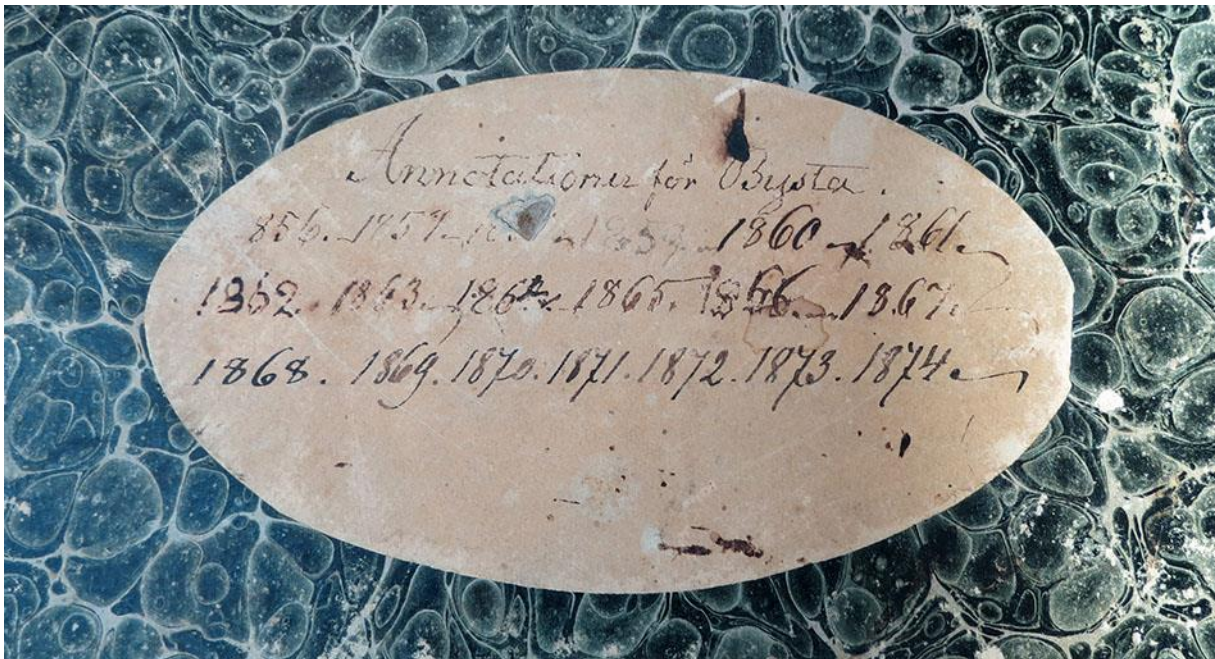 Annotationer för Bysta.
856. 1857. 1859. 1860. 1861.
1862. 1863. 1864. 1865. 1866. 1867.
1868. 1869. 1870. 1871. 1872. 1873. 1874.